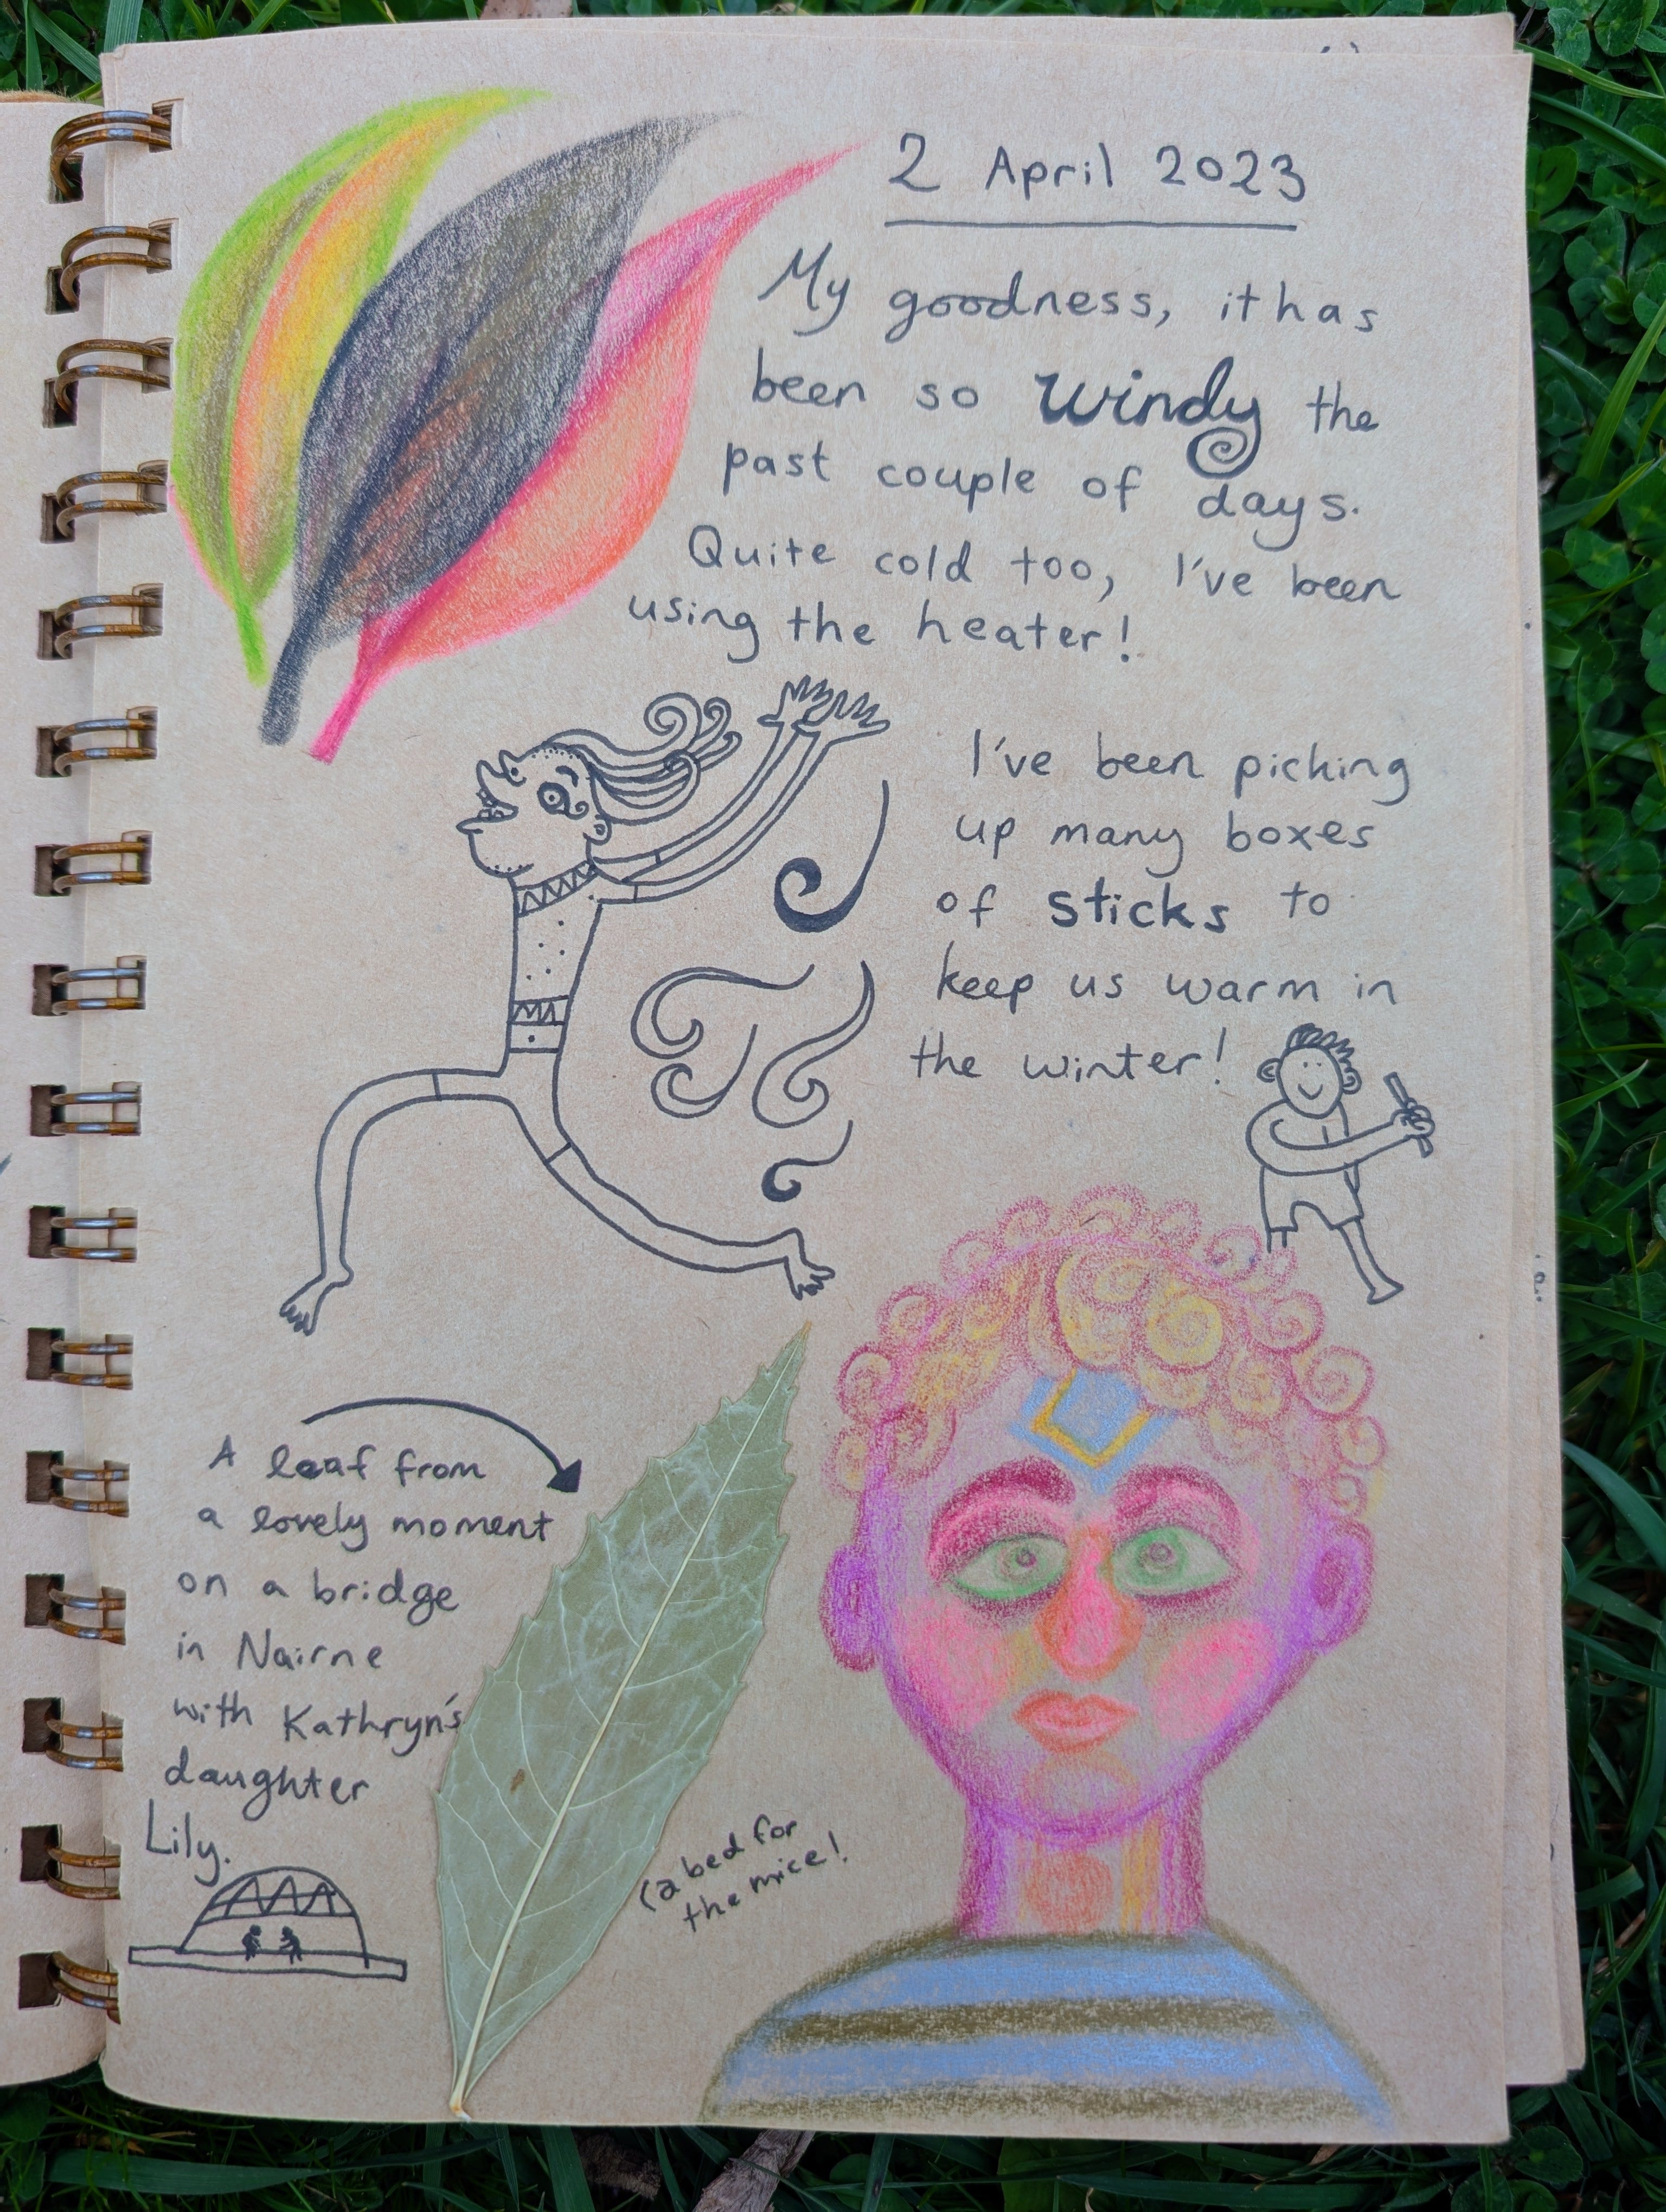 2 April 2023
My goodness, it has
been so windy the
past couple of days.
Quite cold too, I've been
using the heater!
I've been picking
up many boxes
of sticks to
keep us warm in
the winter!
A leaf from
a lovely moment
on a bridge
in Nairne
with Kathryn's
daughter
Lily.
(a bed for
the mice!